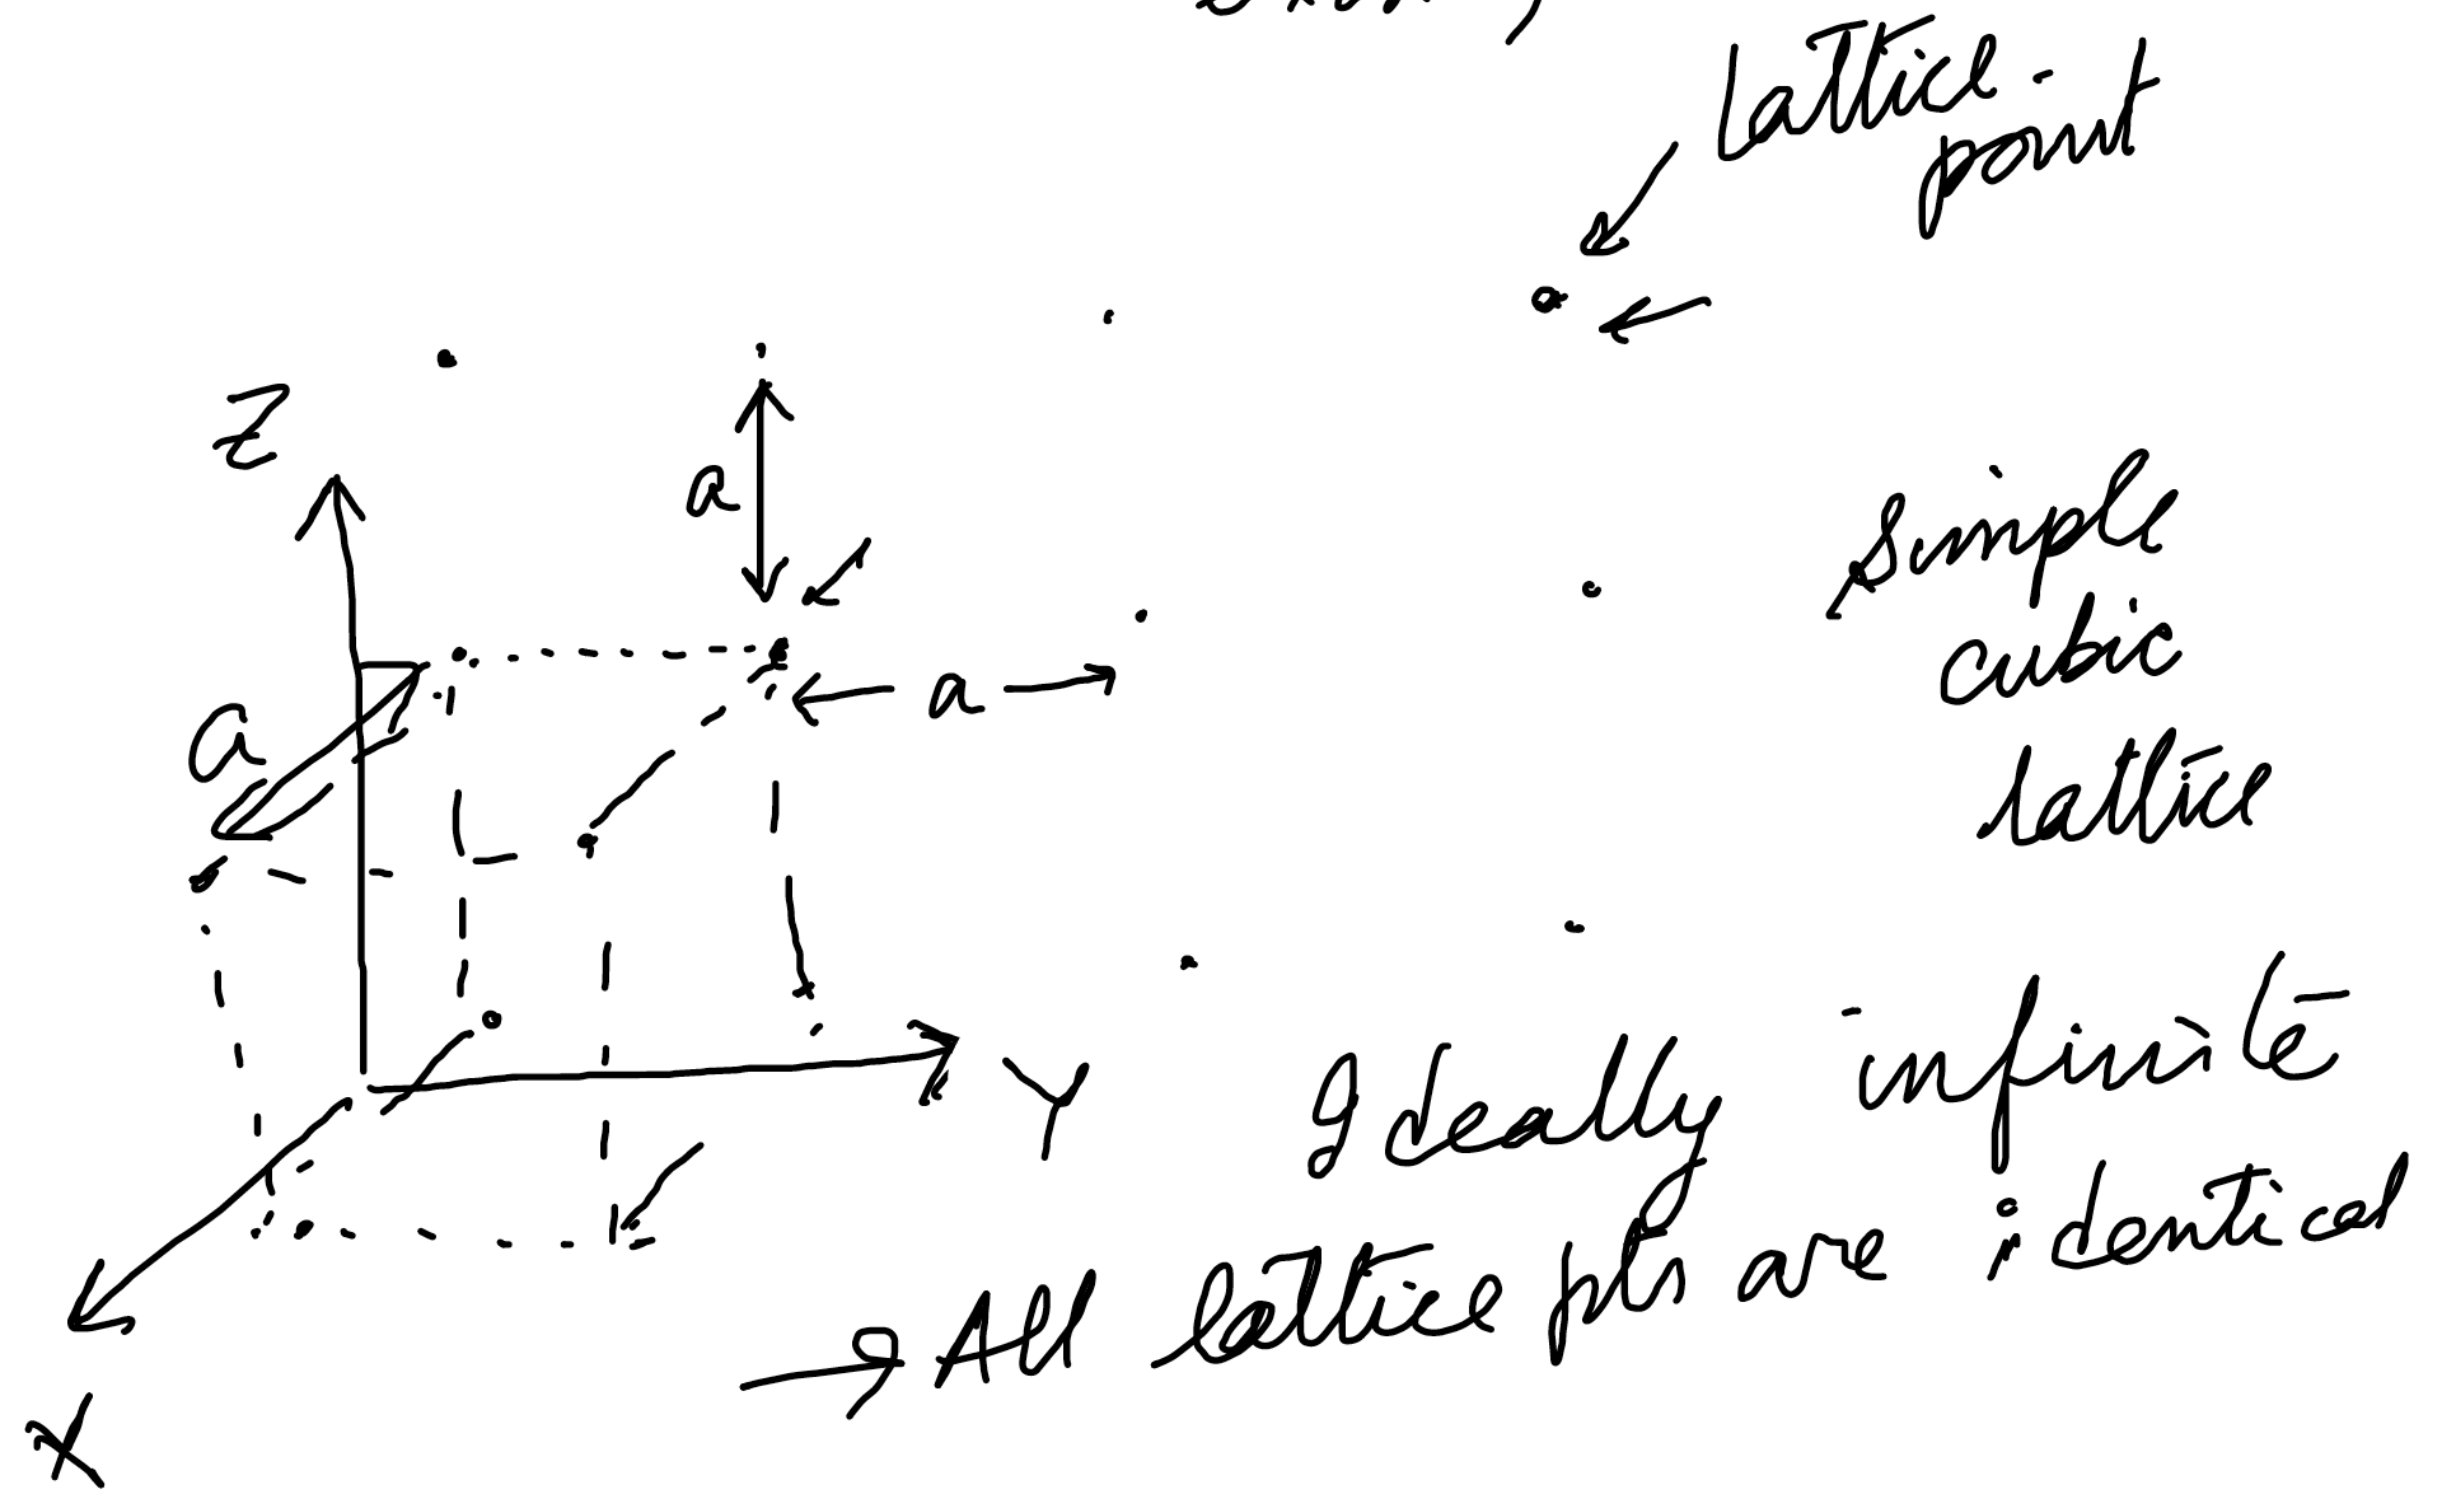 lattice-
point
Z
a
simple
cubic
lattice
a
a
Y
Ideally infinite
→ All lattice pts are identical
X